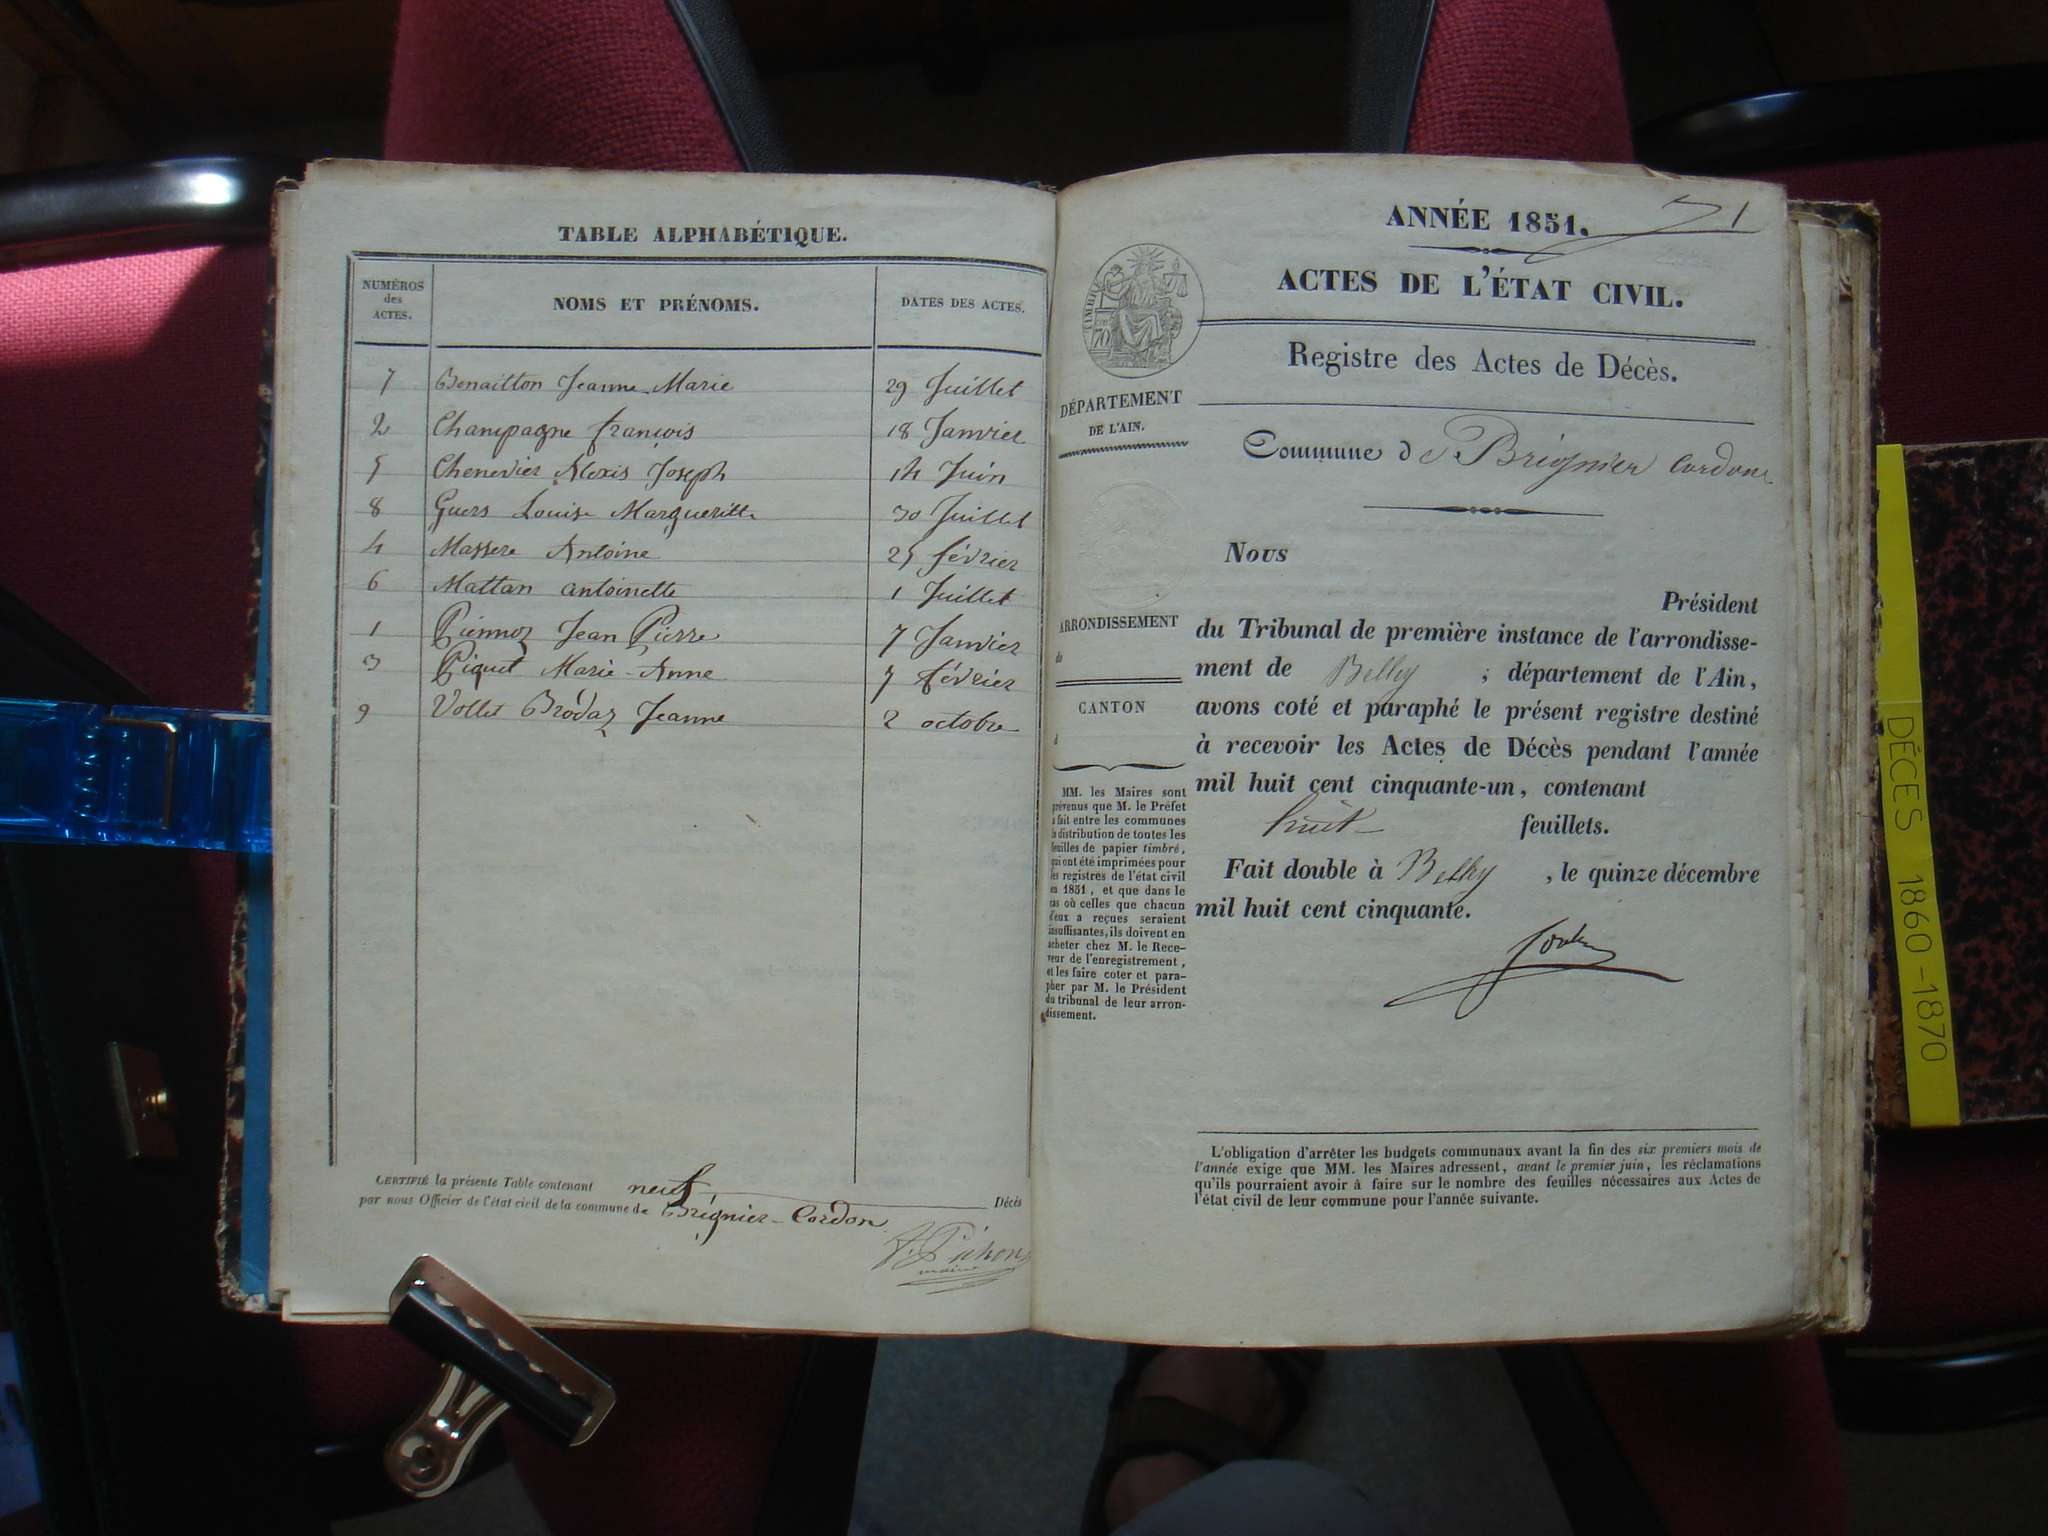 TABLE ALPHABÉTIQUE.
NUMÉROS des ACTES. NOMS ET PRÉNOMS. DATES DES ACTES.
7 Benaitton Jeanne Marie 29 Juillet
2 Champagne françois 18 Janvier
5 Chenevier Alexis Joseph 14 Juin
8 Guers Louise Margueritte 30 Juillet
4 Massere Antoine 25 février
6 Mattan antoinette 1 Juillet
1 Jean Pierre 7 Janvier
3 Piquet Marie-Anne 7 février
9 Vollet Brodaz Jeanne 2 octobre
CERTIFIÉ la présente Table contenant neuf Décès
par nous Officier de l'état civil de la commune de Brégnier-Cordon
Pichon
maire
ANNÉE 1851. 1
ACTES DE L'ÉTAT CIVIL.
Registre des Actes de Décès.
TIMBRE
70
DÉPARTEMENT
DE L'AIN.
Commune de Brégnier Cordon
Nous
Président
ARRONDISSEMENT
de
CANTON
du Tribunal de première instance de l'arrondisse-
ment de Belley ; département de l'Ain,
avons coté et paraphé le présent registre destiné
à recevoir les Actes de Décès pendant l'année
mil huit cent cinquante-un, contenant
huit feuillets.
Fait double à Belley , le quinze décembre
mil huit cent cinquante.
MM. les Maires sont
prévenus que M. le Préfet
a fait entre les communes
la distribution de toutes les
feuilles de papier timbré,
qui ont été imprimées pour
les registres de l'état civil
en 1851, et que dans le
cas où celles que chacun
d'eux a reçues seraient
insuffisantes, ils doivent en
acheter chez M. le Rece-
veur de l'enregistrement,
et les faire coter et para-
pher par M. le Président
du tribunal de leur arron-
dissement.
L'obligation d'arrêter les budgets communaux avant la fin des six premiers mois de
l'année exige que MM. les Maires adressent, avant le premier juin, les réclamations
qu'ils pourraient avoir à faire sur le nombre des feuilles nécessaires aux Actes de
l'état civil de leur commune pour l'année suivante.
DÉCES 1860-1870